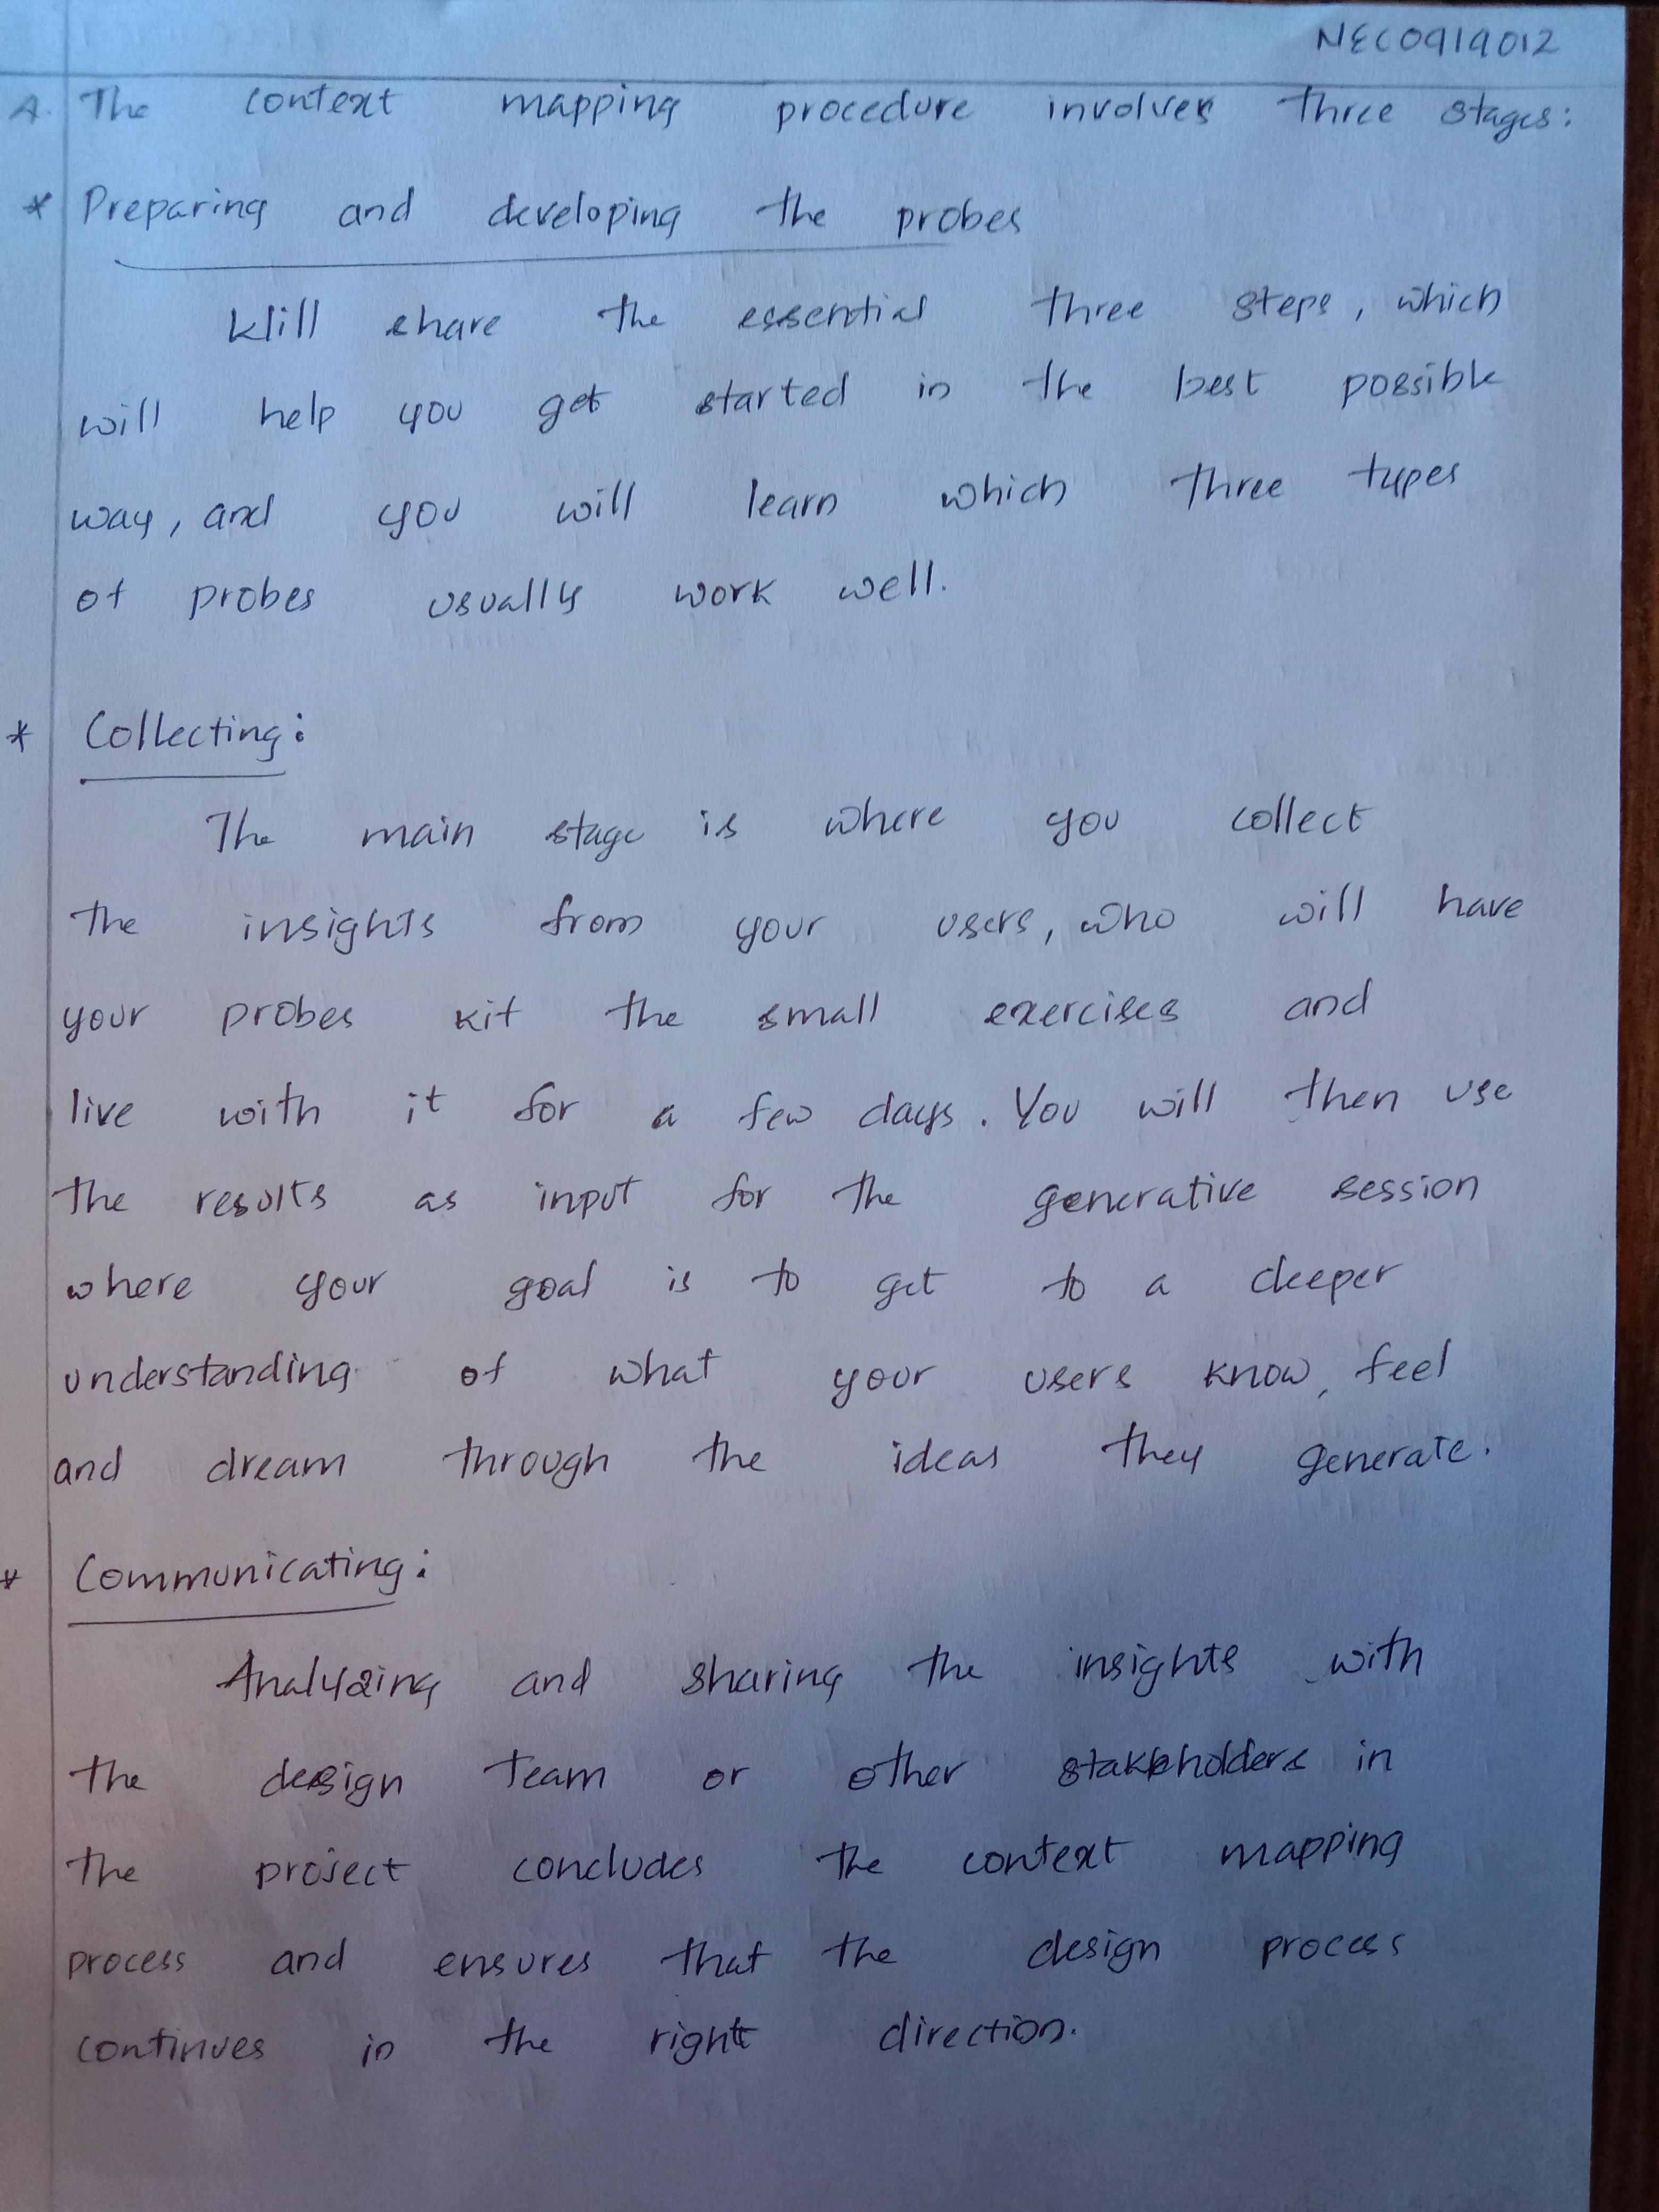 NEC0919012
A. The context mapping procedure involves three stages:
* Preparing and developing the probes
Will share the essential three steps, which
will help you get started in the best possible
way, and you will learn which three types
of probes usually work well.
* Collecting:
The main stage is where you collect
the insights from your users, who will have
your probes kit the small exercises and
live with it for a few days. You will then use
the results as input for the generative session
where your goal is to get to a deeper
understanding of what your users know, feel
and dream through the ideas they generate.
* Communicating:
Analyzing and sharing the insights with
the design team or other stakeholders in
the project concludes the context mapping
process and ensures that the design process
continues in the right direction.